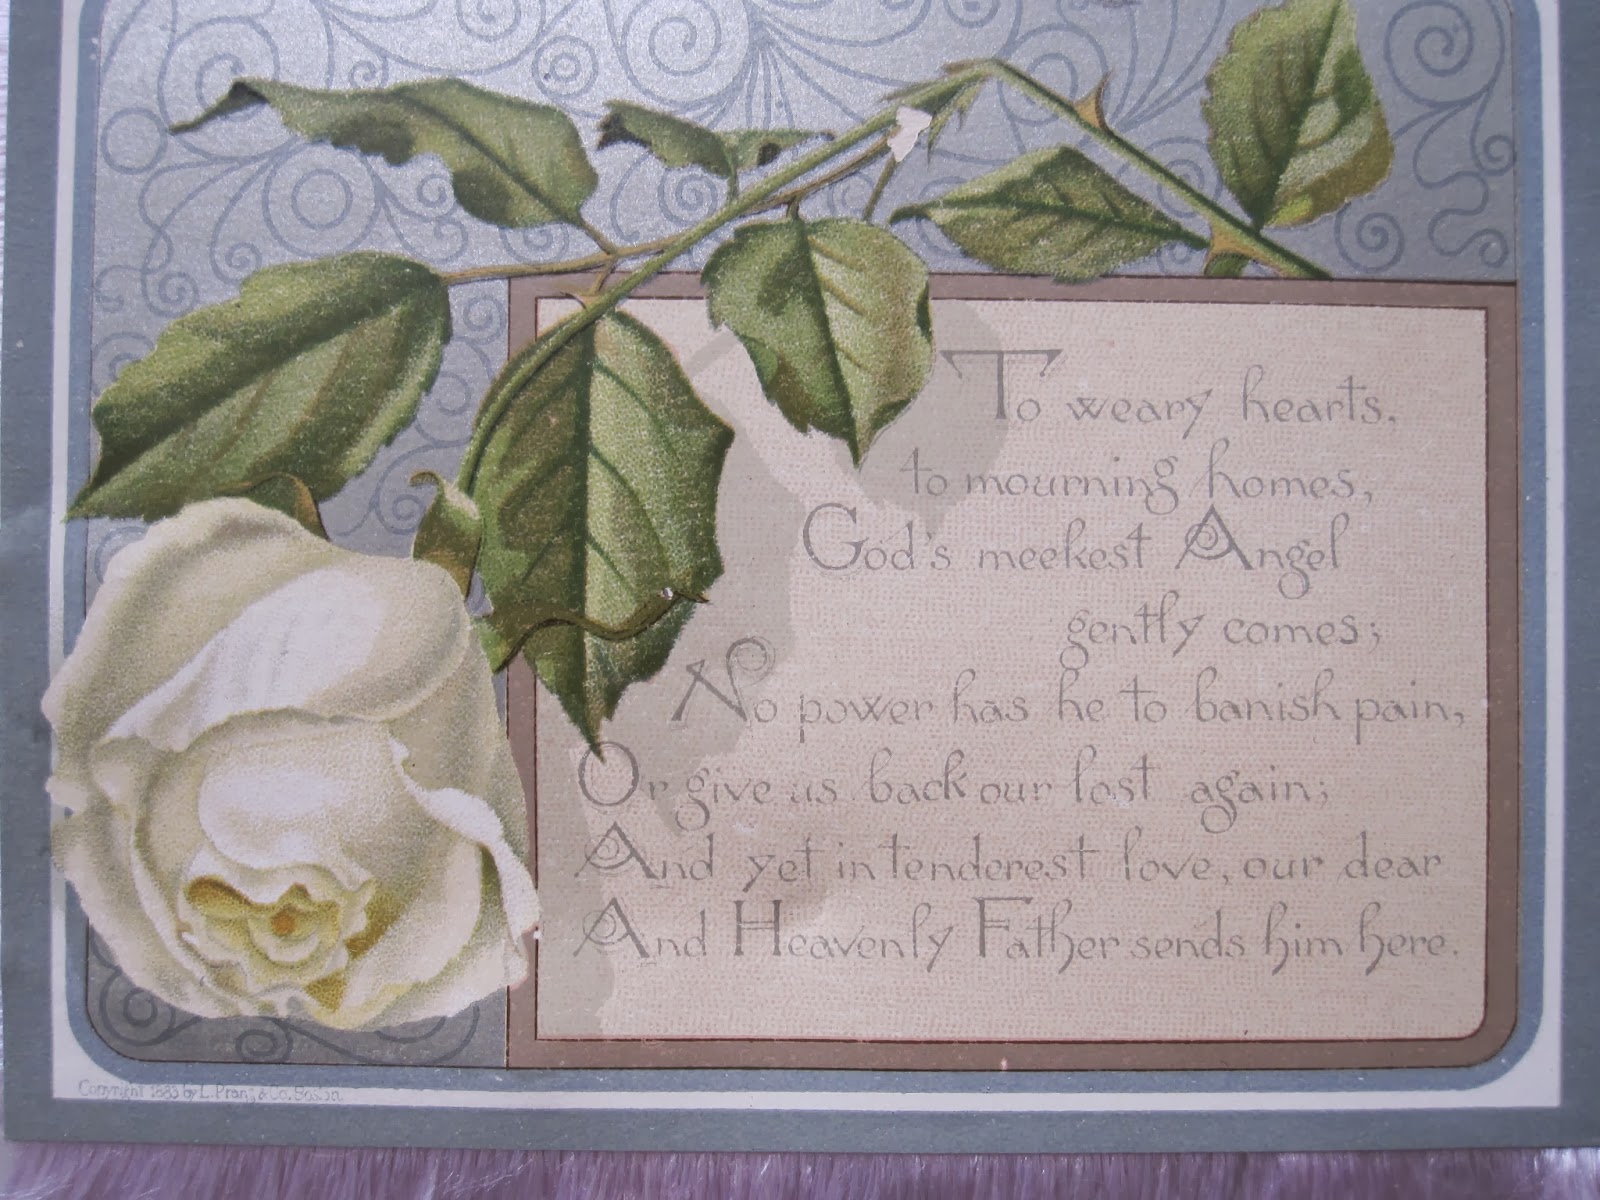 To weary hearts,
to mourning homes,
God's meekest Angel
gently comes;
No power has he to banish pain,
Or give us back our lost again;
And yet in tenderest love, our dear
And Heavenly Father sends him here.
Copyright 1883 by L. Prang & Co. Boston.